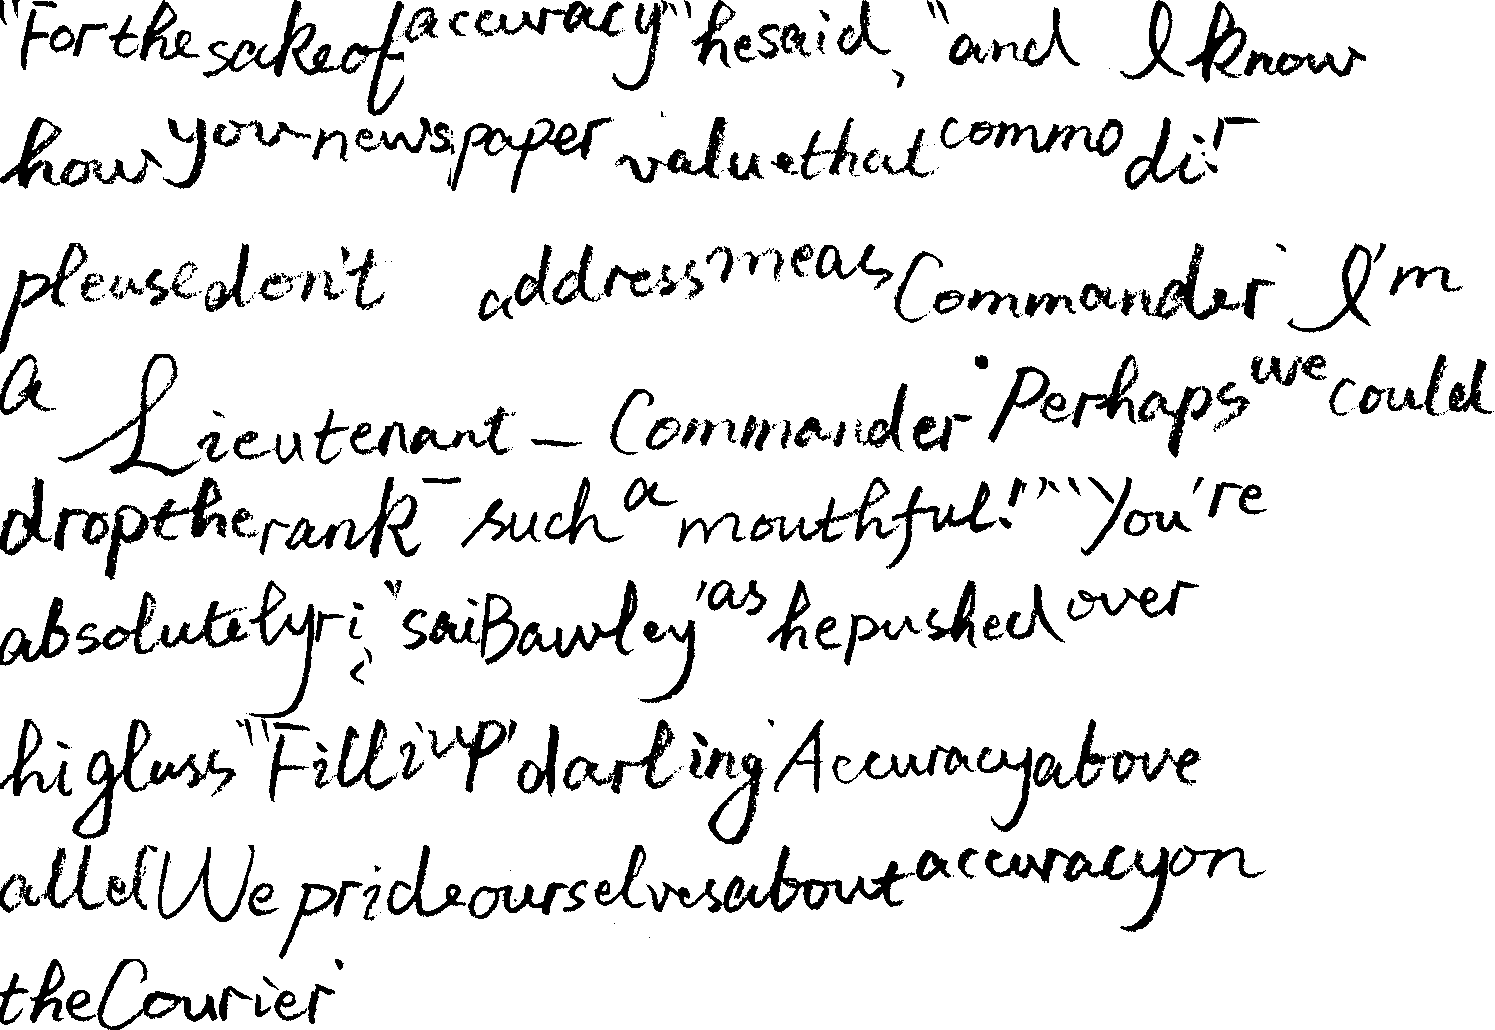 "For the sake of accuracy" he said, "and I know
how you newspaper value that commodi! -
please don't address me as Commander. I'm
a Lieutenant - Commander. Perhaps we could
drop the rank - such a mouthful!" "You're
absolutely ri, "sai Bawley, as he pushed over
hi gluss "Fill i up, darling Accuracy above
all el We pride ourselves about accuracy on
the Courier.